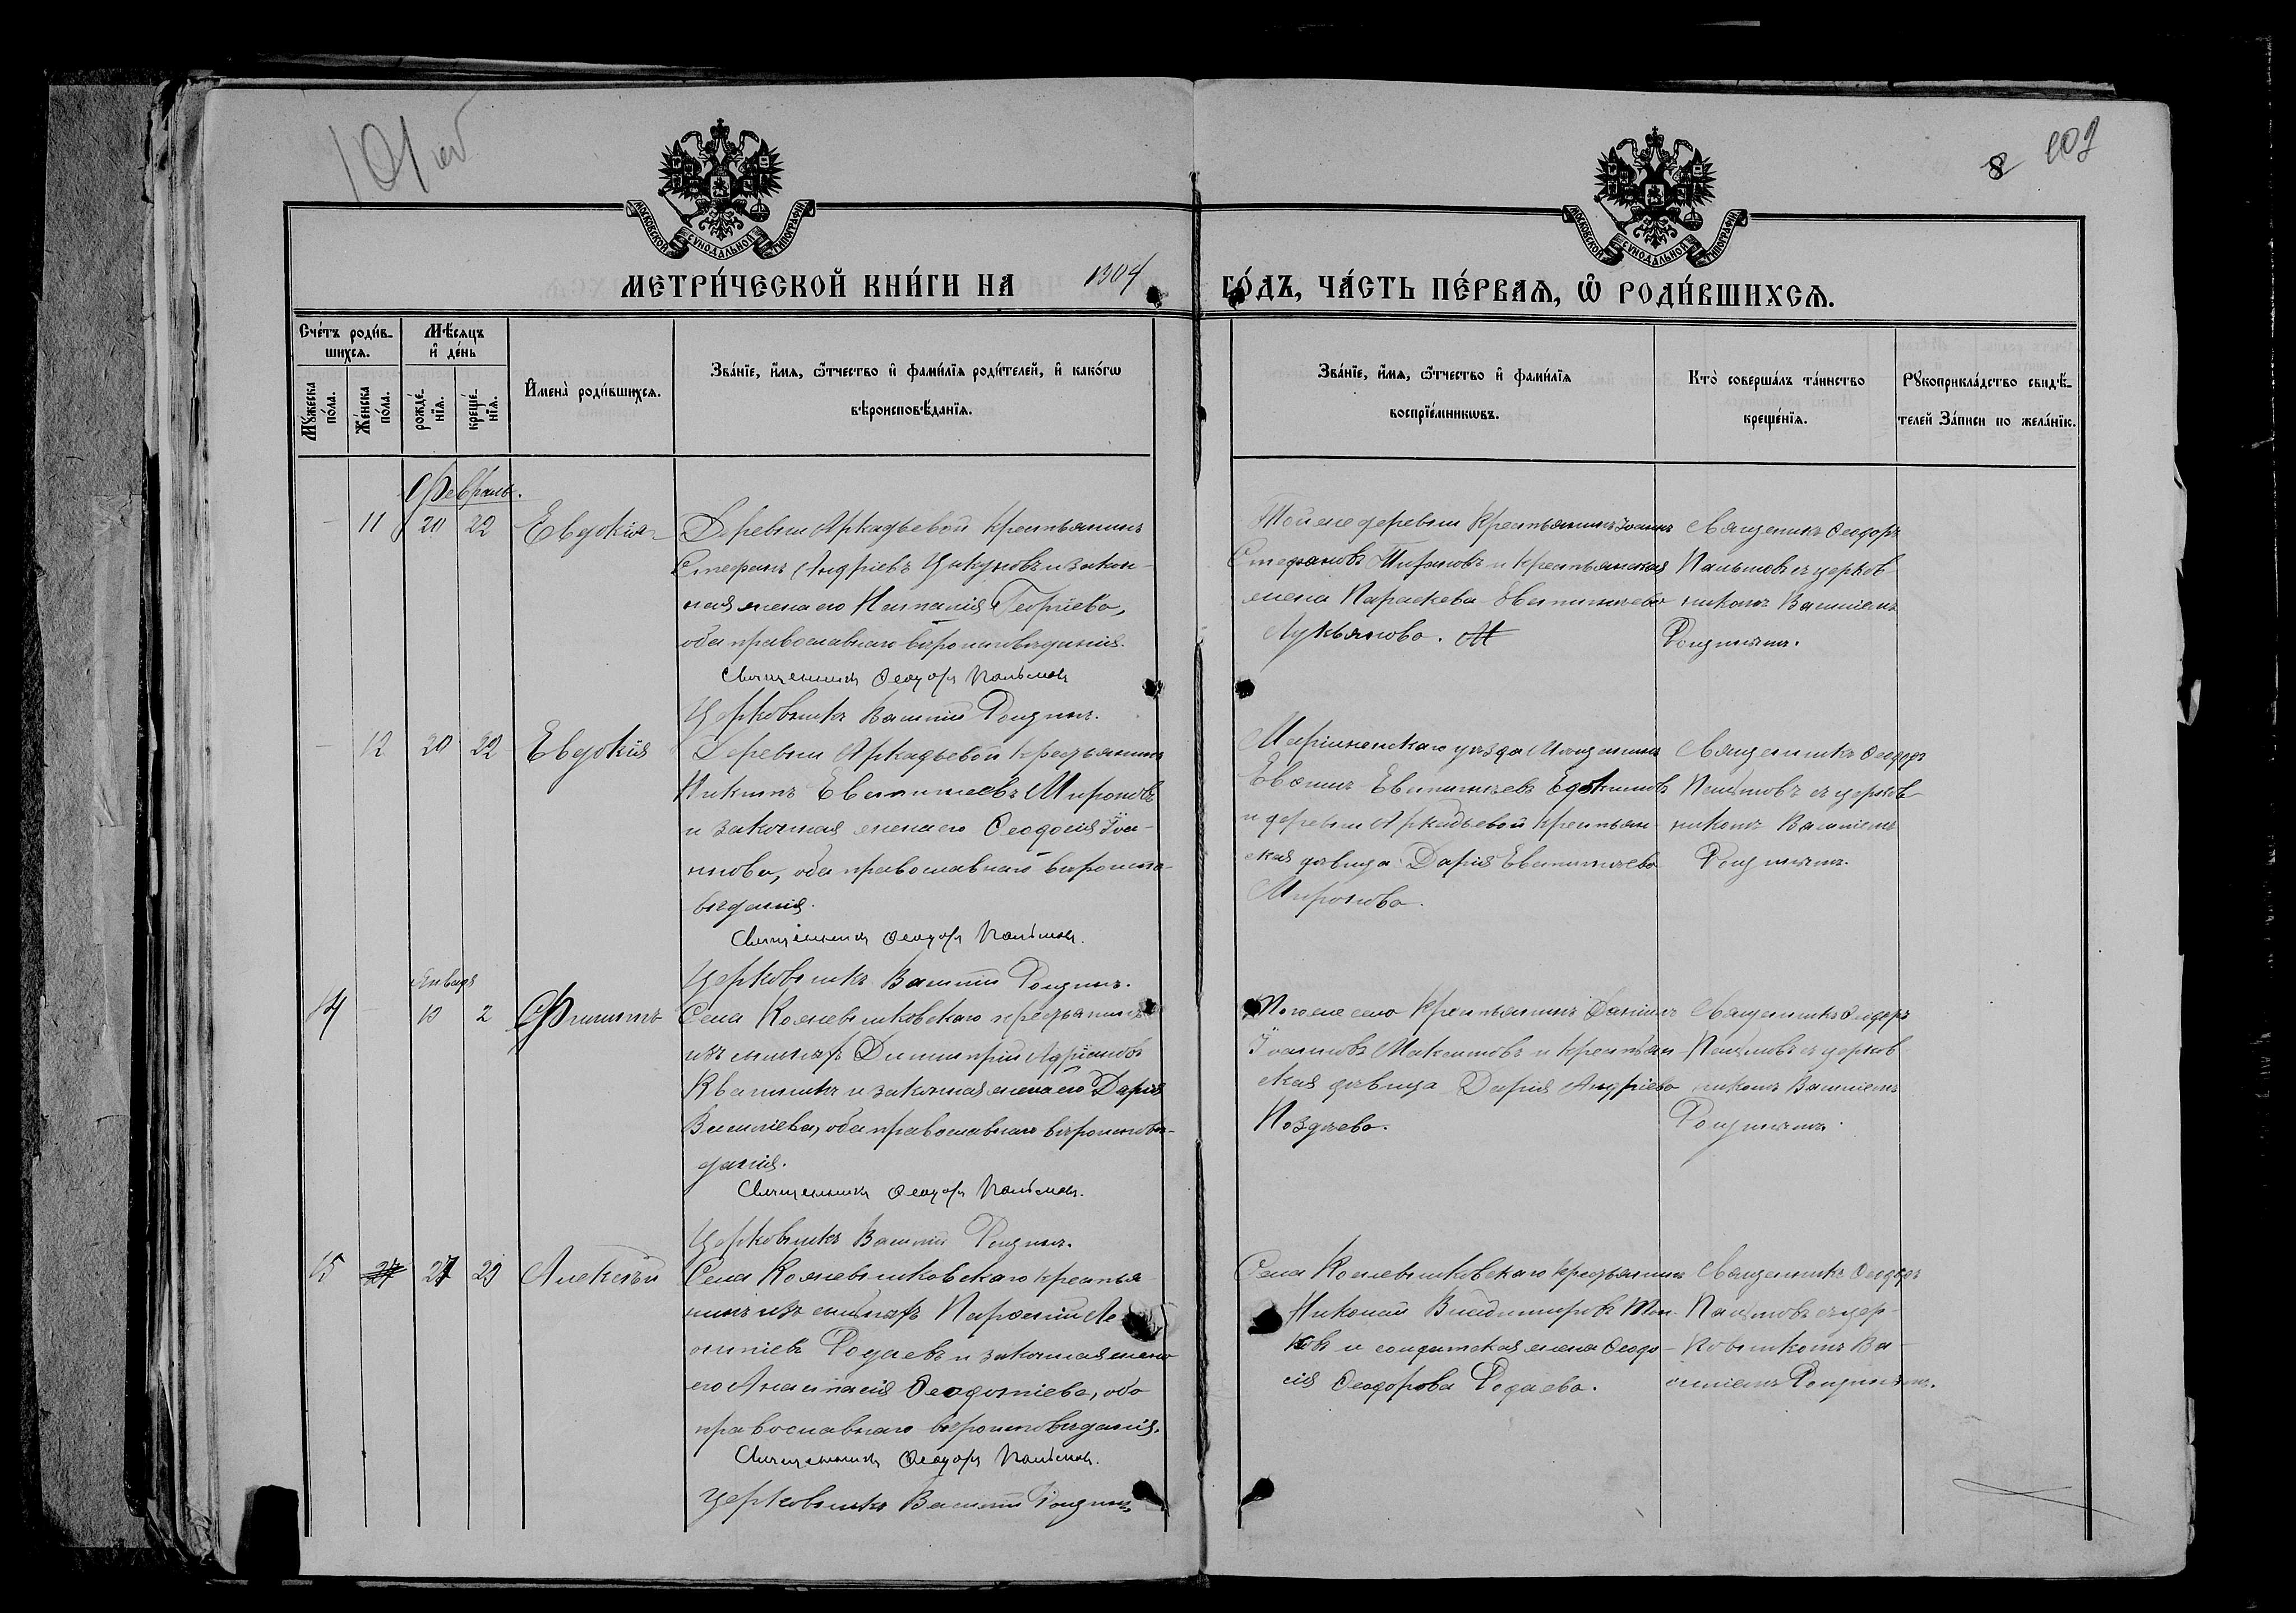 101 об
8 102
МОСКОВСКОЙ СѴНОДАЛЬНОЙ ТИПОГРАФІИ
МОСКОВСКОЙ СѴНОДАЛЬНОЙ ТИПОГРАФІИ
МЕТРИ́ЧЕСКОЙ КНИ́ГИ НА 1904 ГО́ДЪ, ЧА́СТЬ ПЕ́РВАѦ, Ѡ҆ РОДИ́ВШИХСѦ.
Сче́тъ роди́в-
шихсѧ.
Мѣ́сѧцъ
и҆ де́нь
Мꙋ́жеска
по́ла.
Же́нска
по́ла.
рожде́-
нїѧ.
креще́-
нїѧ.
И҆мена̀ роди́вшихсѧ.
Зва́нїе, и҆́мѧ, ѻ҆́тчество и҆ фами́лїѧ роди́телей, и҆ како́гѡ
вѣроисповѣ́данїѧ.
Зва́нїе, и҆́мѧ, ѻ҆́тчество и҆ фами́лїѧ
воспрїе́мникѡвъ.
Кто̀ соверша́лъ та́инство
креще́нїѧ.
Рꙋкоприкла́дство свидѣ́-
телей за́писи по жела́нїю.
Февраль.
- 11 20 22 Евдокія
Деревни Аркадьевой крестьянинъ
Стефанъ Андріевъ Цикуновъ и закон-
ная жена его Наталія Георгіева,
оба православнаго вѣроисповѣданія.
Священникъ Ѳеодоръ Пальмовъ
Церковникъ Василій Рощинъ.
Тойже деревни крестьянинъ Іоаннъ
Стефановъ и крестьянская
жена Параскева Евтихіева
Лукьянова.
Священникъ Ѳеодоръ
Пальмовъ съ церков-
никомъ Василіемъ
Рощинымъ.
- 12 20 22 Евдокія
Деревни Аркадьевой крестьянинъ
Никита Евтихіевъ Мироновъ
и законная жена его Ѳеодосія Іоа-
ннова, оба православнаго вѣроиспо-
вѣданія.
Священникъ Ѳеодоръ Пальмовъ.
Церковникъ Василій Рощинъ.
Маріинскаго уѣзда
Евтихіевъ
и деревни Аркадьевой крестьян-
ская дѣвица Дарія Евтихіева
Миронова.
Священникъ Ѳеодоръ
Пальмовъ съ церков-
никомъ Василіемъ
Рощинымъ.
Января
14 - 10 2 Филиппъ
Села Кожевниковскаго крестьянинъ
Димитрій Адріановъ
Квашнинъ и законная жена его Дарія
Василіева, оба православнаго вѣроисповѣ-
данія.
Священникъ Ѳеодоръ Пальмовъ.
Церковникъ Василій Рощинъ.
Тогоже села крестьянинъ Даніилъ
Іоанновъ Максимовъ и крестьян-
ская дѣвица Дарія Андріева
Поздѣева.
Священникъ Ѳеодоръ
Пальмовъ съ церков-
никомъ Василіемъ
Рощинымъ.
15 27 29 Алексѣй
Села Кожевниковскаго крестья-
нинъ Парѳеній Ле-
онтіевъ Родаевъ и законная жена
его Анастасія Ѳеодотіева, оба
православнаго вѣроисповѣданія.
Священникъ Ѳеодоръ Пальмовъ.
Церковникъ Василій Рощинъ
Села Кожевниковскаго крестьянинъ
Николай Владимировъ
и солдатская жена Ѳеодо-
сія Ѳеодорова Родаева.
Священникъ Ѳеодоръ
Пальмовъ съ цер-
ковникомъ Ва-
силіемъ Рощинымъ.